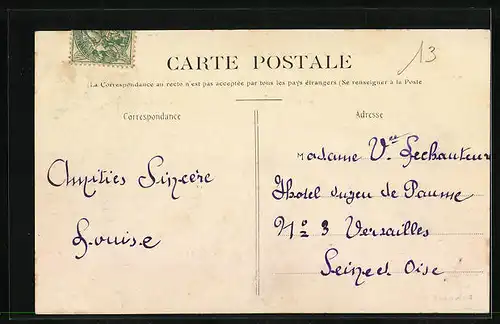 13
CARTE POSTALE
(La Correspondance au recto n'est pas acceptée par tous les pays étrangers (Se renseigner à la Poste
Correspondance
Adresse
Amitiés Sincère
Louise
Madame Vve Lechanteur
Hotel du jeu de Paume
No 3 Versailles
Seine et Oise